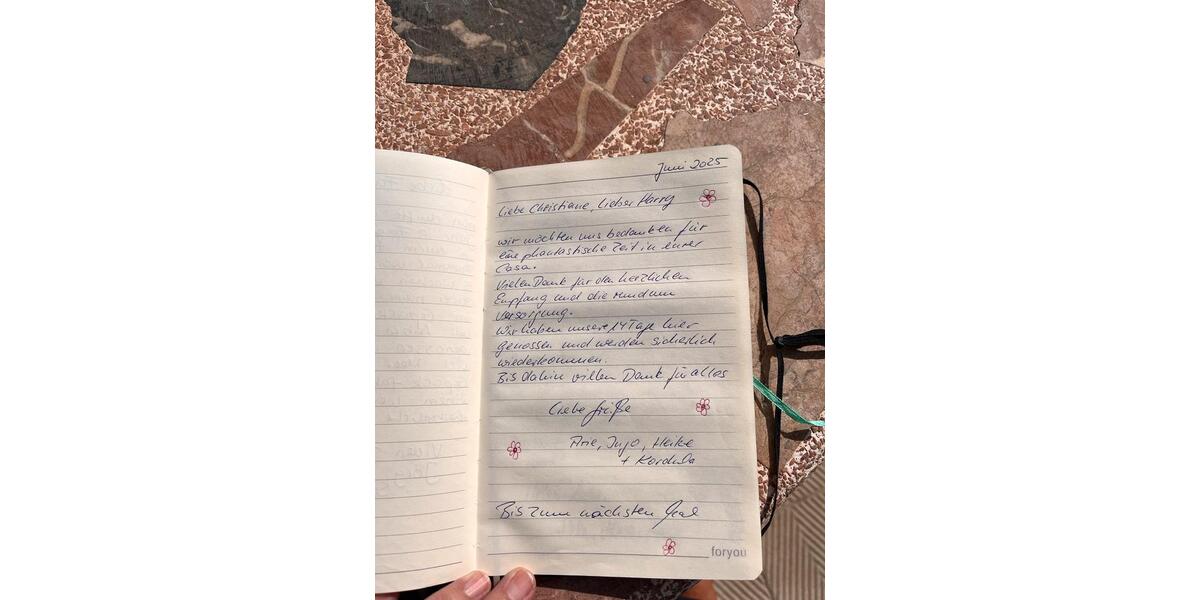 Juni 2025
Liebe Christiane, lieber Harry
wir möchten uns bedanken für
eine phantastische Zeit in eurer
Casa.
Vielen Dank für den herzlichen
Empfang und die rundum
Versorgung.
Wir haben unsere 14 Tage hier
genossen und werden sicherlich
wiederkommen.
Bis dahin vielen Dank für alles
Liebe Grüße
Arie, Ingo, Heike
+ Kordula
Bis zum nächsten Mal
foryou